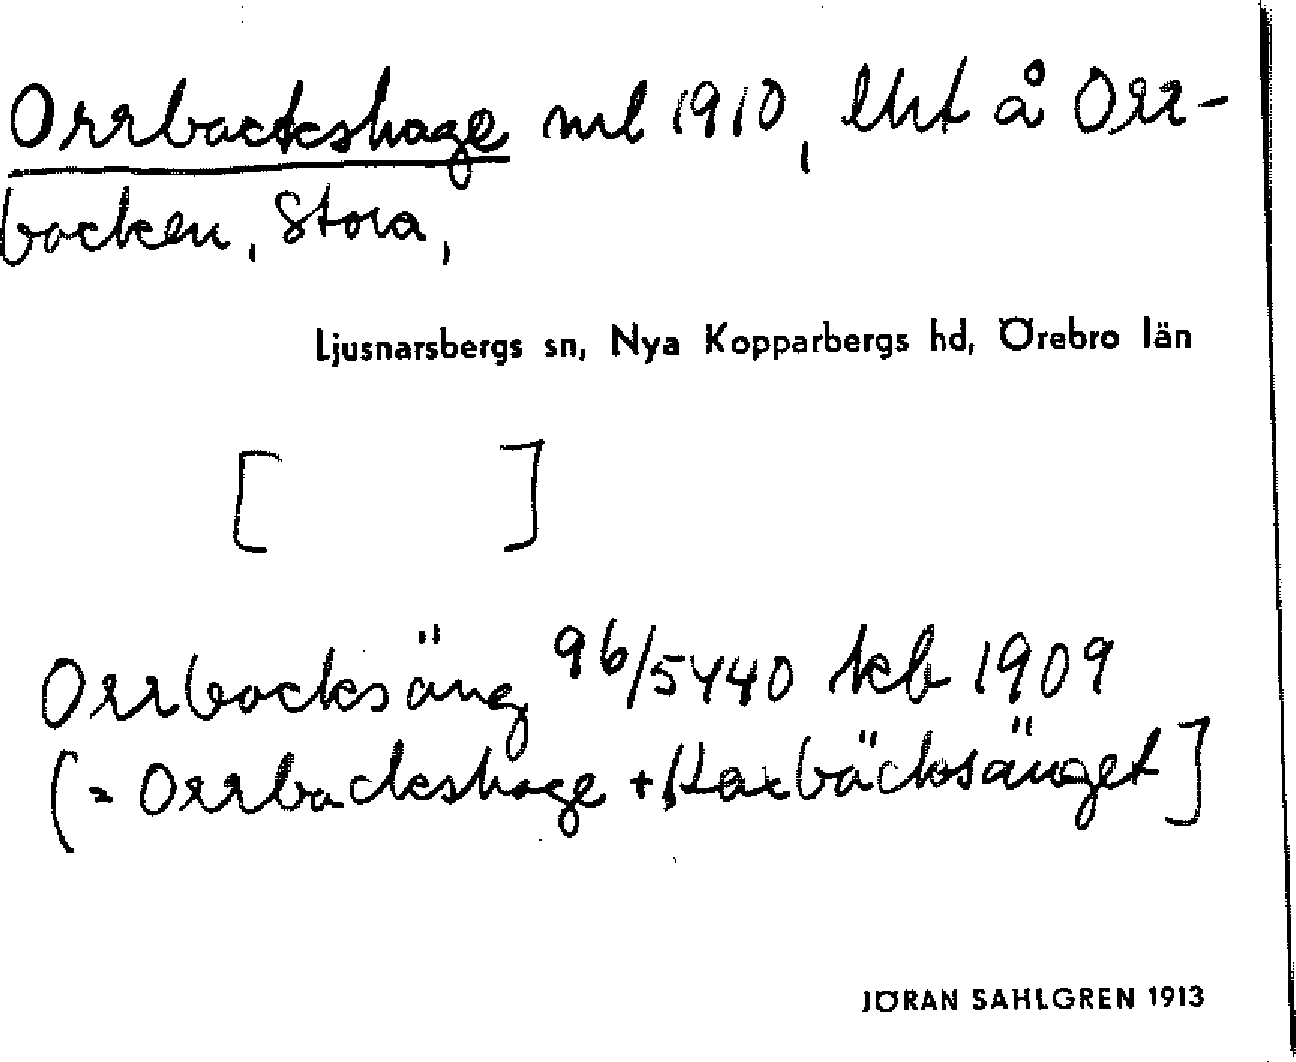 Orrbackshage ml 1910, lht å Orr-
backen, Stora,
Ljusnarsbergs sn, Nya Kopparbergs hd, Örebro län
[ ]
Orrbocksäng 96/5440 kb 1909
(= Orrbackshage + Harbäcksänget]
JÖRAN SAHLGREN 1913